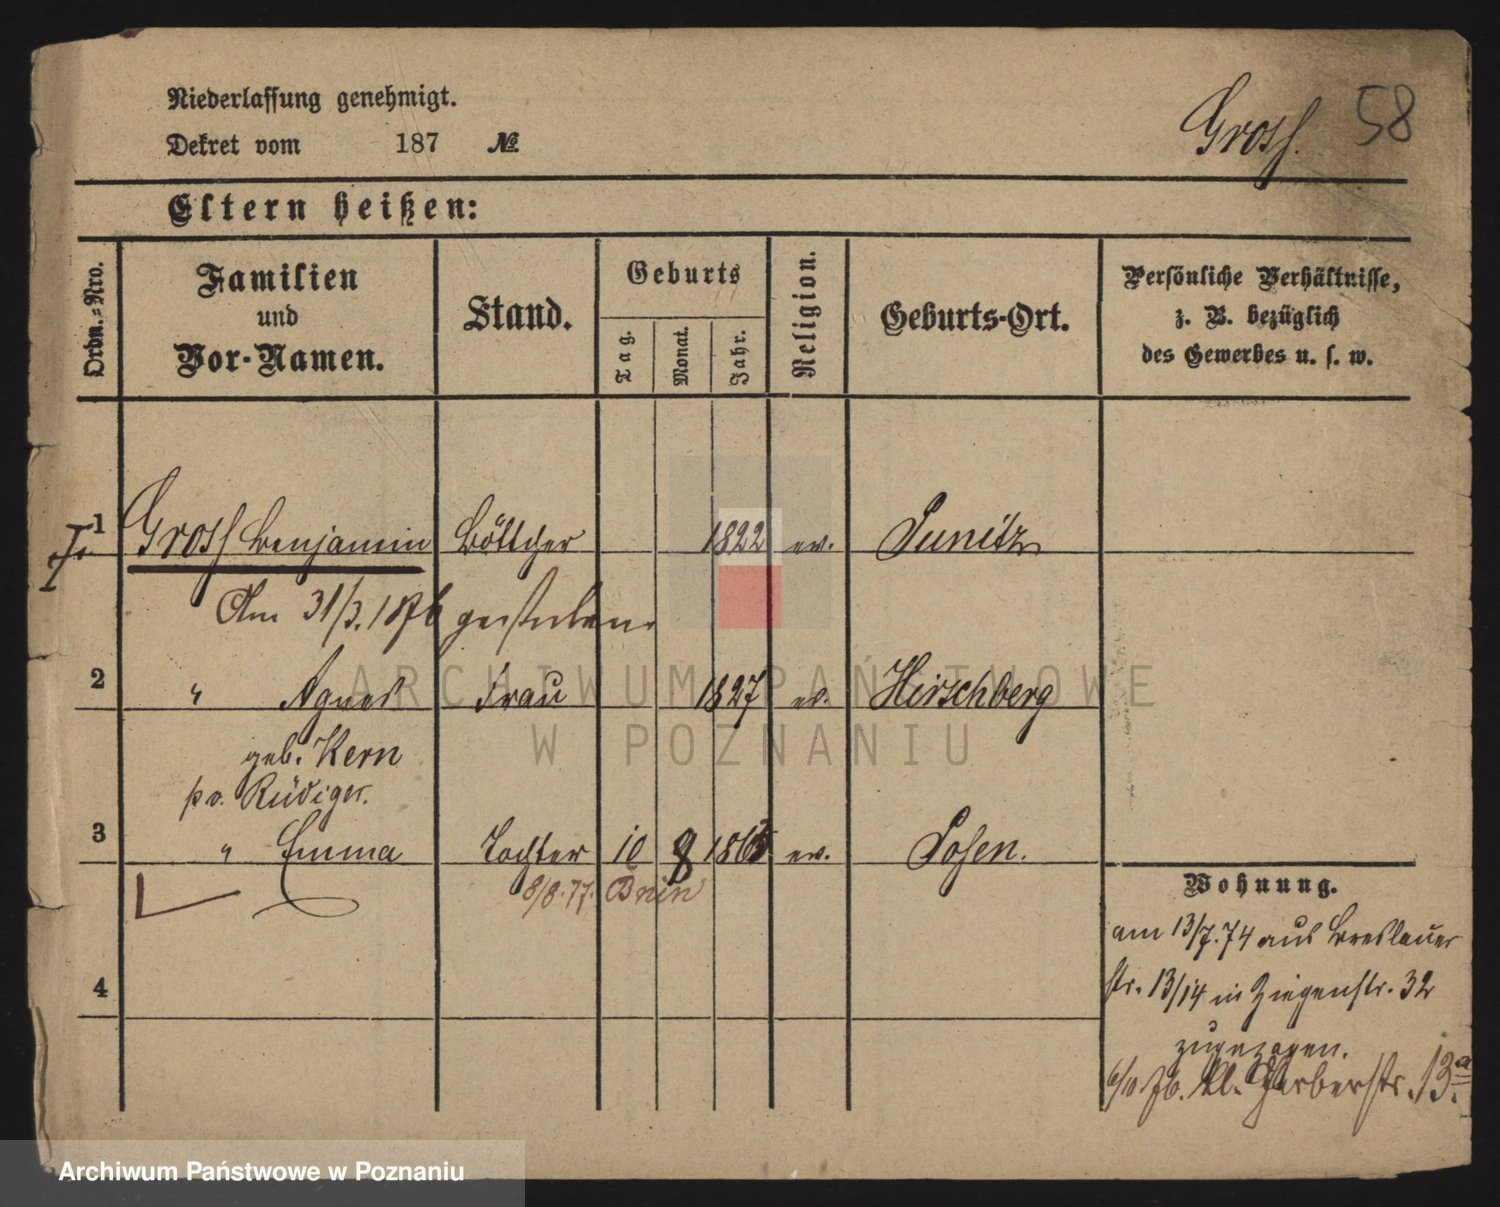 Niederlassung genehmigt.
Dekret vom 187 №
Gross. 58
Eltern heißen:
Ordn.-Nro. Familien und Vor-Namen. Stand. Geburts Tag. Monat. Jahr. Religion. Geburts-Ort. Persönliche Verhältnisse, z. B. bezüglich des Gewerbes u. s. w.
1 Gross Benjamin Böttcher 1822 ev. Punitz
Am 31/3.1876 gestorben.
2 " Agnes Frau 1827 ev. Hirschberg
geb. Kern
Rüdiger.
3 " Emma Tochter 10 8 1865 ev. Posen.
8/8.77. Bnin
4
Wohnung.
am 13/7.74 aus Breslauer
str. 13/14 in Ziegenstr. 32
zugezogen.
Kl. Gerberstr. 13a
ARCHIWUM PAŃSTWOWE
W POZNANIU
Archiwum Państwowe w Poznaniu